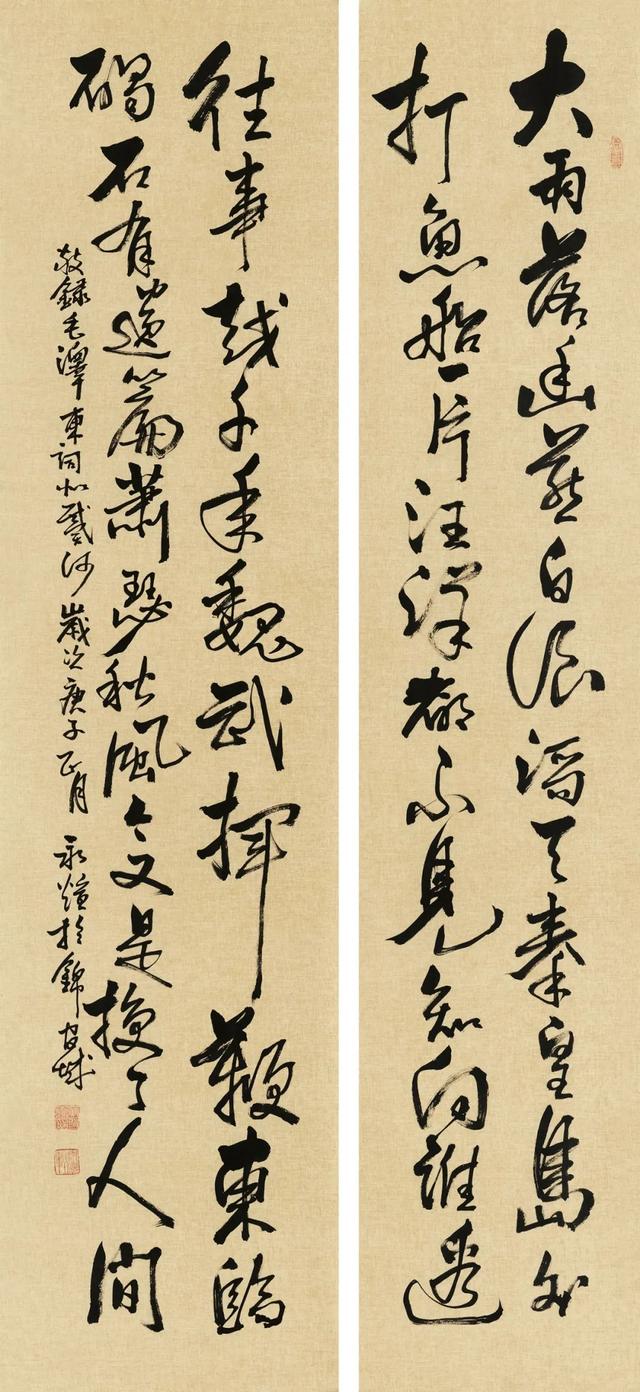 大雨落幽燕白浪滔天秦皇島外
打魚船一片汪洋都不見知向誰邊
往事越千年魏武揮鞭東臨
碣石有遺篇蕭瑟秋風今又是換了人間
敬錄毛澤東詞北戴河歲次庚子正月永煊於錦官城